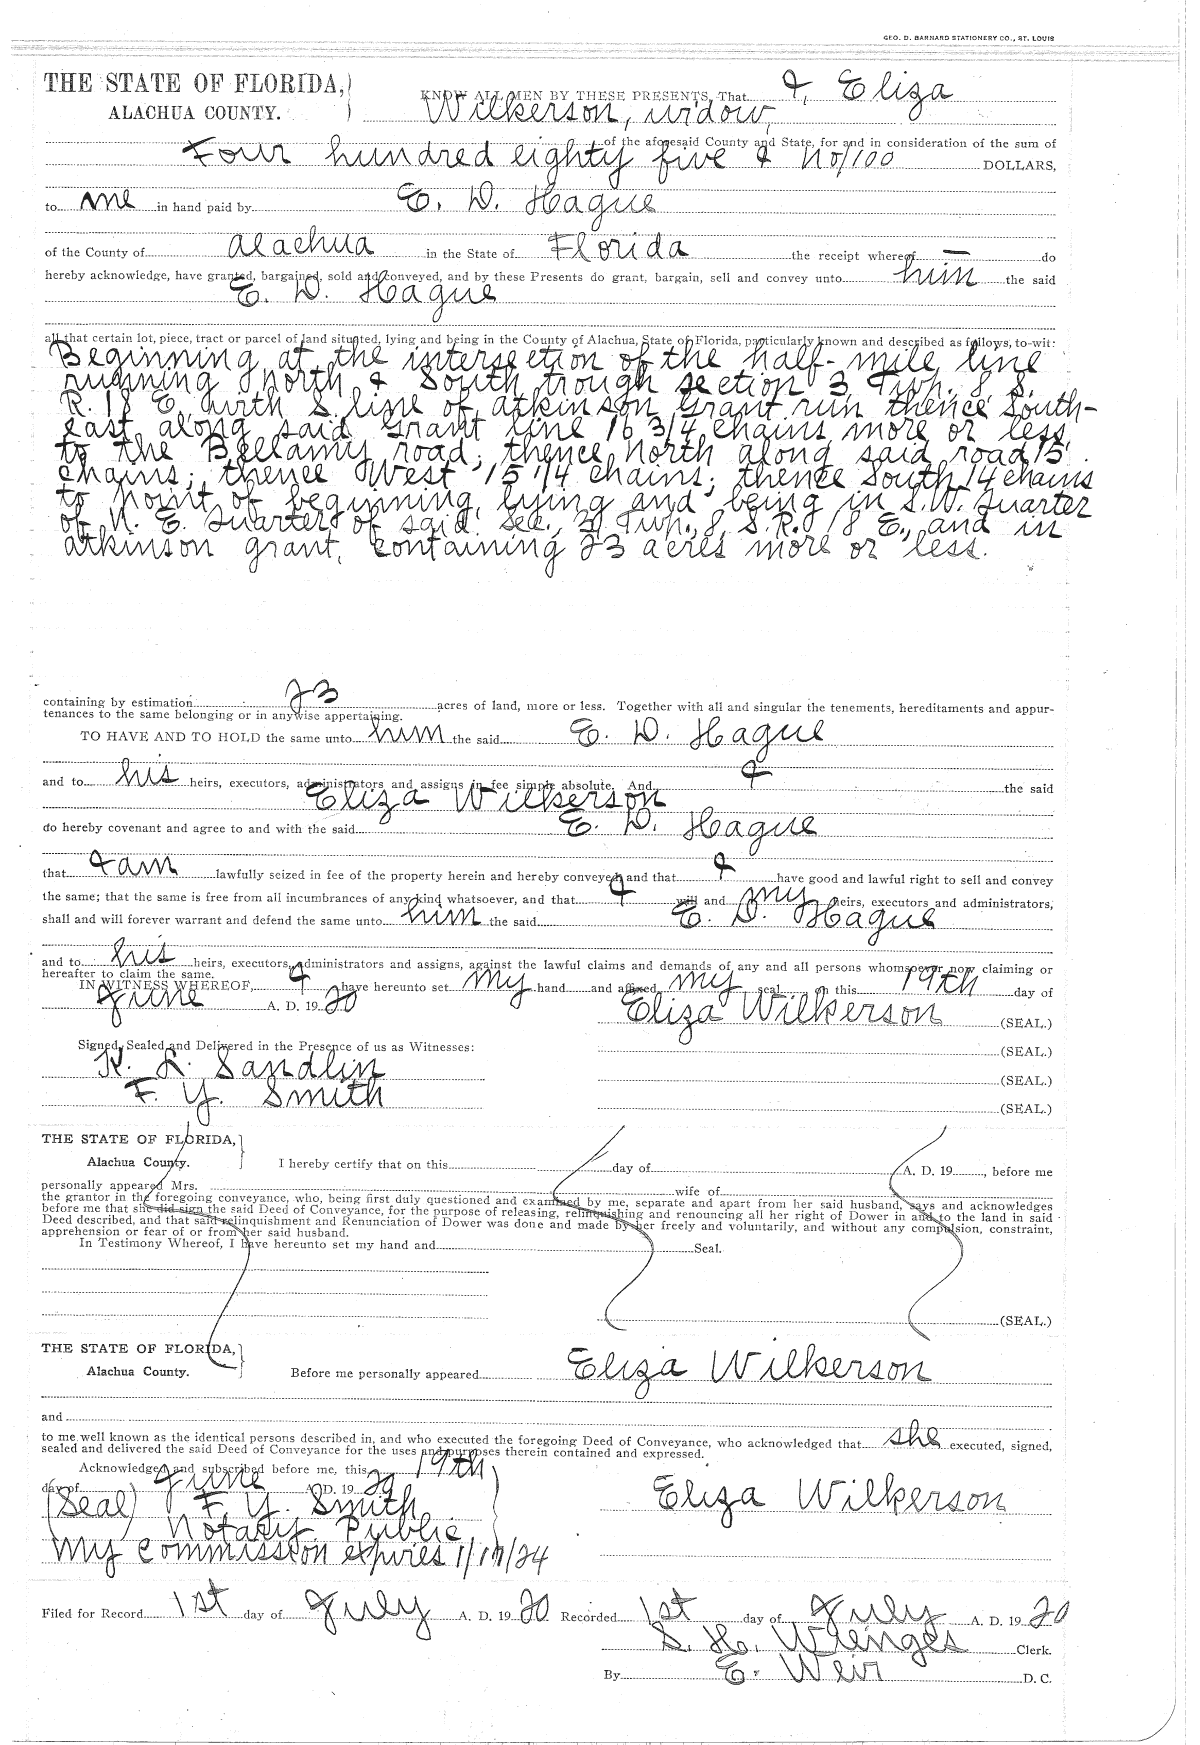 GEO. D. BARNARD STATIONERY CO., ST. LOUIS
THE STATE OF FLORIDA,
ALACHUA COUNTY.
KNOW ALL MEN BY THESE PRESENTS, That I, Eliza
Wilkerson, widow,
of the aforesaid County and State, for and in consideration of the sum of
Four hundred eighty five & no/100 DOLLARS,
to me in hand paid by E. D. Hague
of the County of Alachua in the State of Florida the receipt whereof — do
hereby acknowledge, have granted, bargained, sold and conveyed, and by these Presents do grant, bargain, sell and convey unto him the said
E. D. Hague
all that certain lot, piece, tract or parcel of land situated, lying and being in the County of Alachua, State of Florida, particularly known and described as follows, to-wit:
Beginning at the intersection of the half-mile line
running North & South trough section 3, Twp. 8 S.
R. 18 E. with S. line of atkinson Grant run thence South-
east along said Grant line 16 3/4 chains more or less,
to the Bellamy road; thence North along said road 15
chains; thence West 15 1/4 chains; thence South 14 chains
to point of beginning, lying and being in S.W. Quarter
of N. E. Quarter of said Sec., Twp. 8, S. R. 18 E., and in
atkinson grant, containing 23 acres more or less.
containing by estimation 23 acres of land, more or less. Together with all and singular the tenements, hereditaments and appur-
tenances to the same belonging or in anywise appertaining.
TO HAVE AND TO HOLD the same unto him the said E. D. Hague
and to his heirs, executors, administrators and assigns in fee simple absolute. And I the said
Eliza Wilkerson
do hereby covenant and agree to and with the said E. D. Hague
that I am lawfully seized in fee of the property herein and hereby conveyed and that I have good and lawful right to sell and convey
the same; that the same is free from all incumbrances of any kind whatsoever, and that I will and my heirs, executors and administrators,
shall and will forever warrant and defend the same unto him the said E. D. Hague
and to his heirs, executors, administrators and assigns, against the lawful claims and demands of any and all persons whomsoever now claiming or
hereafter to claim the same.
IN WITNESS WHEREOF, I have hereunto set my hand and affixed my seal on this 19th day of
June A. D. 1920 Eliza Wilkerson (SEAL.)
Signed, Sealed and Delivered in the Presence of us as Witnesses: (SEAL.)
H. L. Sandlin (SEAL.)
F. Y. Smith (SEAL.)
THE STATE OF FLORIDA,
Alachua County. I hereby certify that on this day of A. D. 19 , before me
personally appeared Mrs. wife of
the grantor in the foregoing conveyance, who, being first duly questioned and examined by me, separate and apart from her said husband, says and acknowledges
before me that she did sign the said Deed of Conveyance, for the purpose of releasing, relinquishing and renouncing all her right of Dower in and to the land in said
Deed described, and that said relinquishment and Renunciation of Dower was done and made by her freely and voluntarily, and without any compulsion, constraint,
apprehension or fear of or from her said husband.
In Testimony Whereof, I have hereunto set my hand and Seal.
(SEAL.)
THE STATE OF FLORIDA,
Alachua County. Before me personally appeared Eliza Wilkerson
and
to me well known as the identical persons described in, and who executed the foregoing Deed of Conveyance, who acknowledged that she executed, signed,
sealed and delivered the said Deed of Conveyance for the uses and purposes therein contained and expressed.
Acknowledged and subscribed before me, this 19th
day of June A. D. 1920 Eliza Wilkerson
(Seal) F. Y. Smith
Notary Public
My commission expires 1/17/24
Filed for Record 1st day of July A. D. 1920 Recorded 1st day of July A. D. 1920
S. H. Wienges Clerk.
By E. Weir D. C.